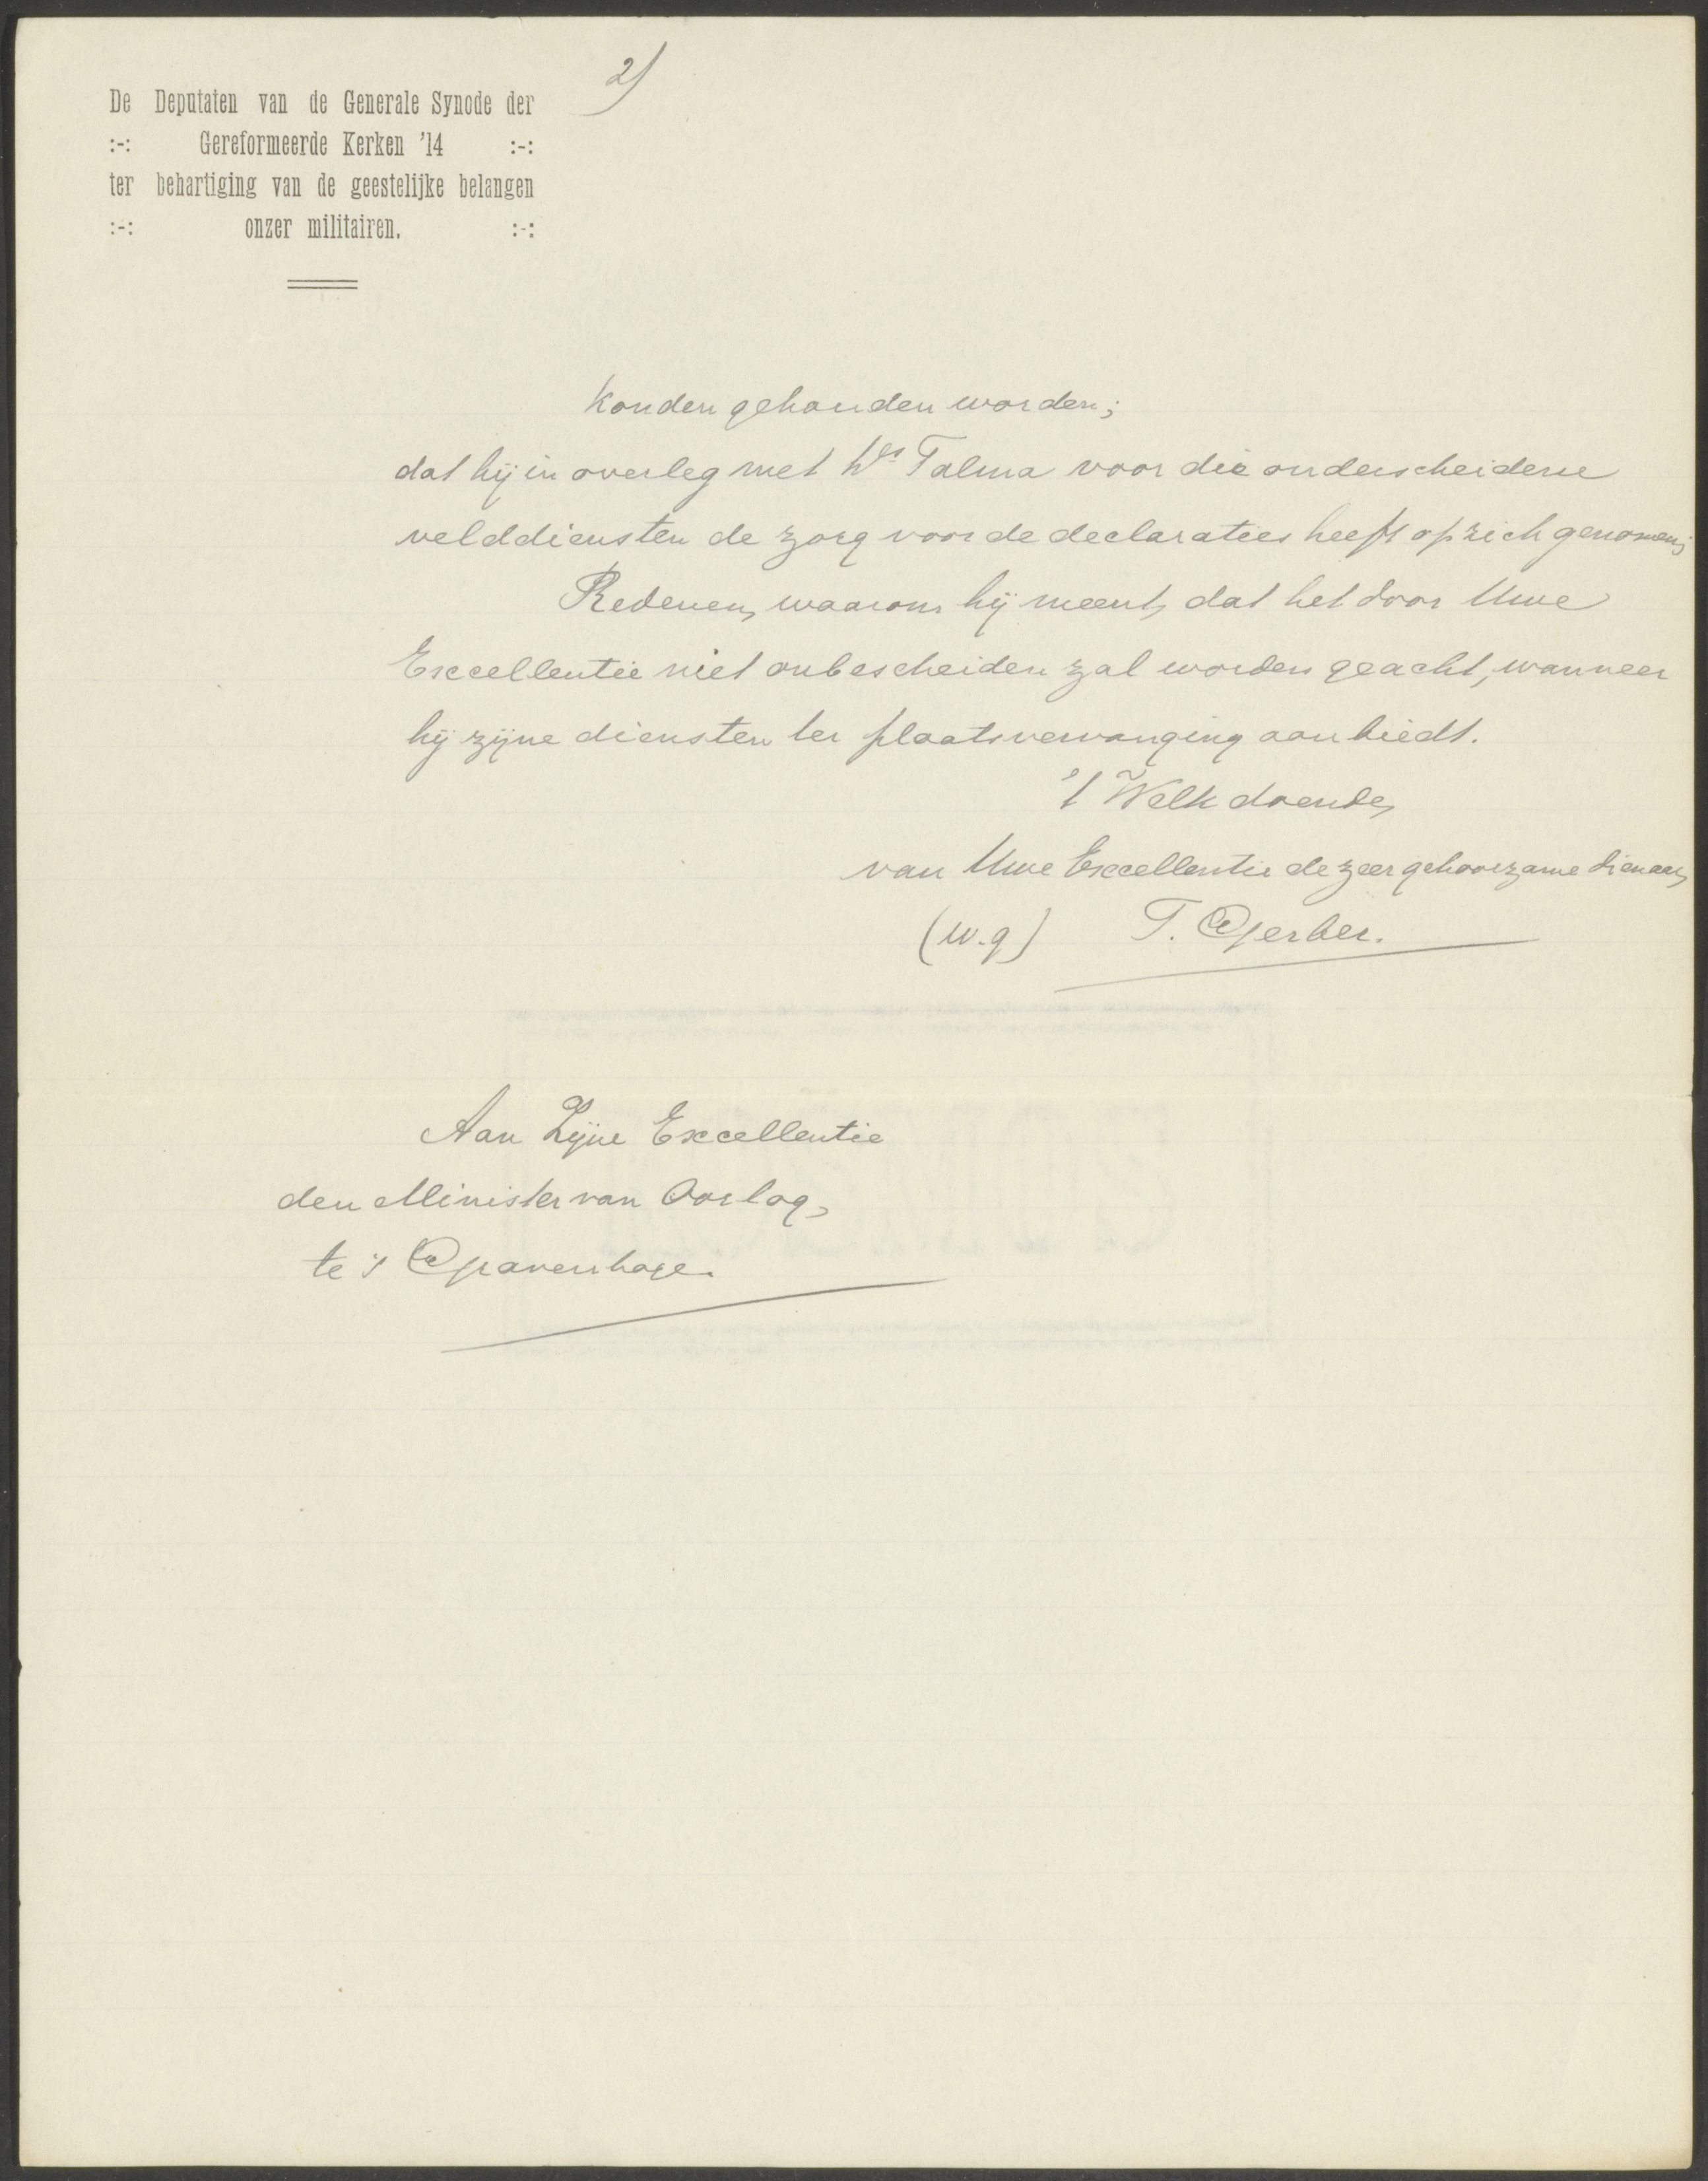 2)
De Deputaten van de Generale Synode der
:-: Gereformeerde Kerken '14 :-:
ter behartiging van de geestelijke belangen
:-: onzer militairen. :-:
konden gehouden worden;
dat hij in overleg met Ds Talma voor die onderscheidene
velddiensten de zorg voor de declaraties heeft op zich genomen;
Redenen, waarom hij meent, dat het door Uwe
Excellentie niet onbescheiden zal worden geacht, wanneer
hij zijne diensten ter plaatsvervanging aanbiedt.
't Welk doende,
van Uwe Excellentie de zeer gehoorzame dienaar,
(w.g) T. Gerber.
Aan Zijne Excellentie
den Minister van Oorlog,
te 's Gravenhage.